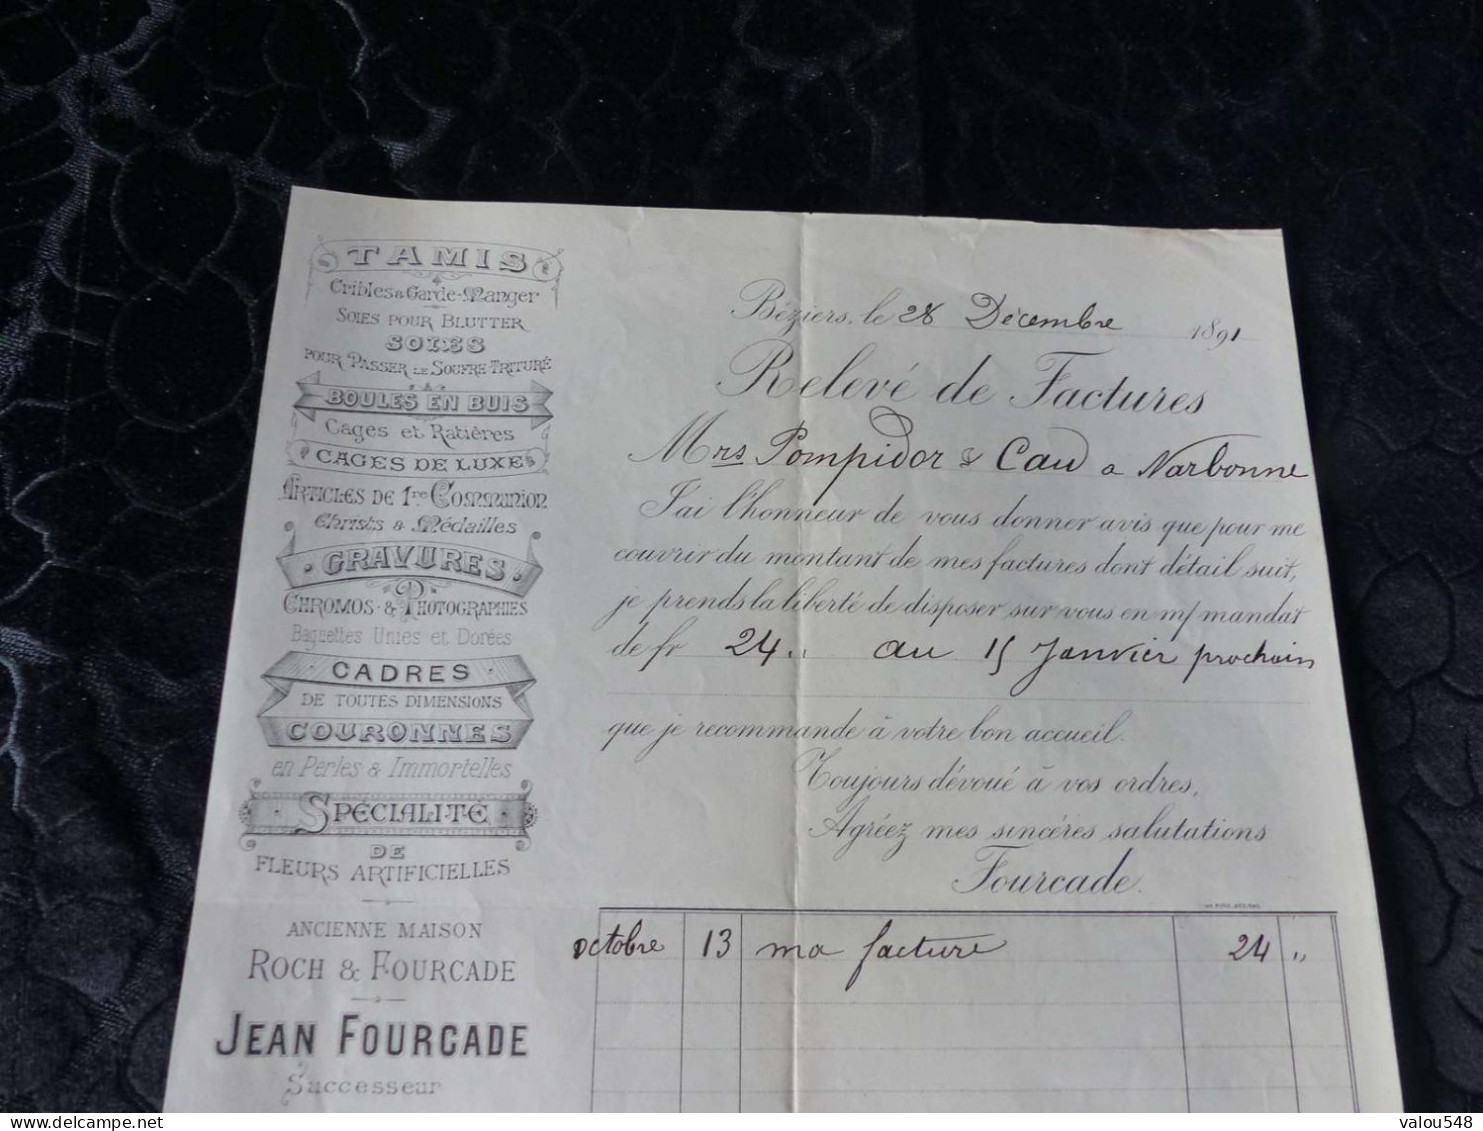 TAMIS
Cribles & Garde-Manger
SOIES POUR BLUTTER
SOIES
POUR PASSER LE SOUFRE TRITURÉ
BOULES EN BUIS
Cages et Ratières
CAGES DE LUXE
ARTICLES DE 1re COMMUNION
Christs & Médailles
GRAVURES
CHROMOS & PHOTOGRAPHIES
Baguettes Unies et Dorées
CADRES
DE TOUTES DIMENSIONS
COURONNES
en Perles & Immortelles
SPÉCIALITÉ
DE
FLEURS ARTIFICIELLES
ANCIENNE MAISON
ROCH & FOURCADE
JEAN FOURCADE
Successeur
Béziers, le 28 Décembre 1891
Relevé de Factures
Mrs Pompidor & Cau a Narbonne
J'ai l'honneur de vous donner avis que pour me
couvrir du montant de mes factures dont détail suit,
je prends la liberté de disposer sur vous en m/ mandat
de fr 24 " au 15 Janvier prochain
que je recommande à votre bon accueil.
Toujours dévoué à vos ordres,
Agréez mes sincères salutations
Fourcade.
octobre 13 ma facture 24 "
delcampe.net
valou548